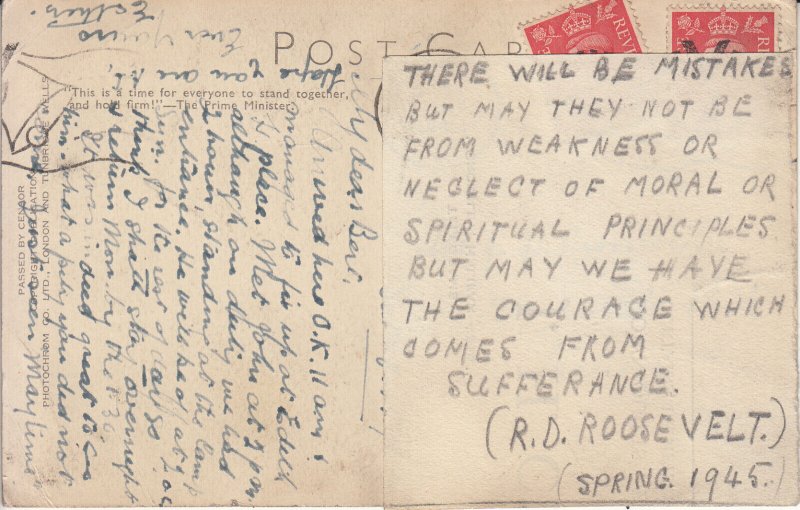 POST CAR
"This is a time for everyone to stand together,
and hold firm!"—The Prime Minister.
PASSED BY CENSOR
PHOTOCHROM CO. LTD., LONDON AND TUNBRIDGE WELLS
REVE
REVE
My dear Bert,
Arrived here O.K. 11 am &
managed to fix up at Edith
's place. Met John at 2 pm
although on duty we had
2 hours, standing at the camp
entrance. He will be at 2 o/c
Sun. for the rest of day so
think I shall stay overnight
& return Mon. by the 8.30.
It was indeed great to see
him. what a pity you did not
Hope
you are
Ever Yours
Esther.
THERE WILL BE MISTAKES
BUT MAY THEY NOT BE
FROM WEAKNESS OR
NEGLECT OF MORAL OR
SPIRITUAL PRINCIPLES
BUT MAY WE HAVE
THE COURAGE WHICH
COMES FROM
SUFFERANCE.
(R.D. ROOSEVELT.)
(SPRING. 1945.)